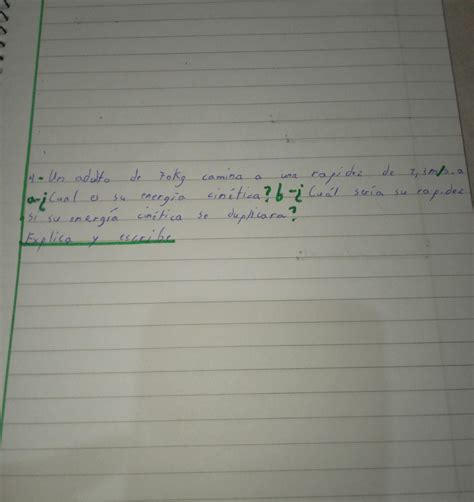 4.- Un adulto de 70Kg camina a una rapidez de 1,3m/s. a
a-¿Cual es su energía cinética? b-¿Cuál sería su rapidez
si su energía cinética se duplicara?
Explica y escribe